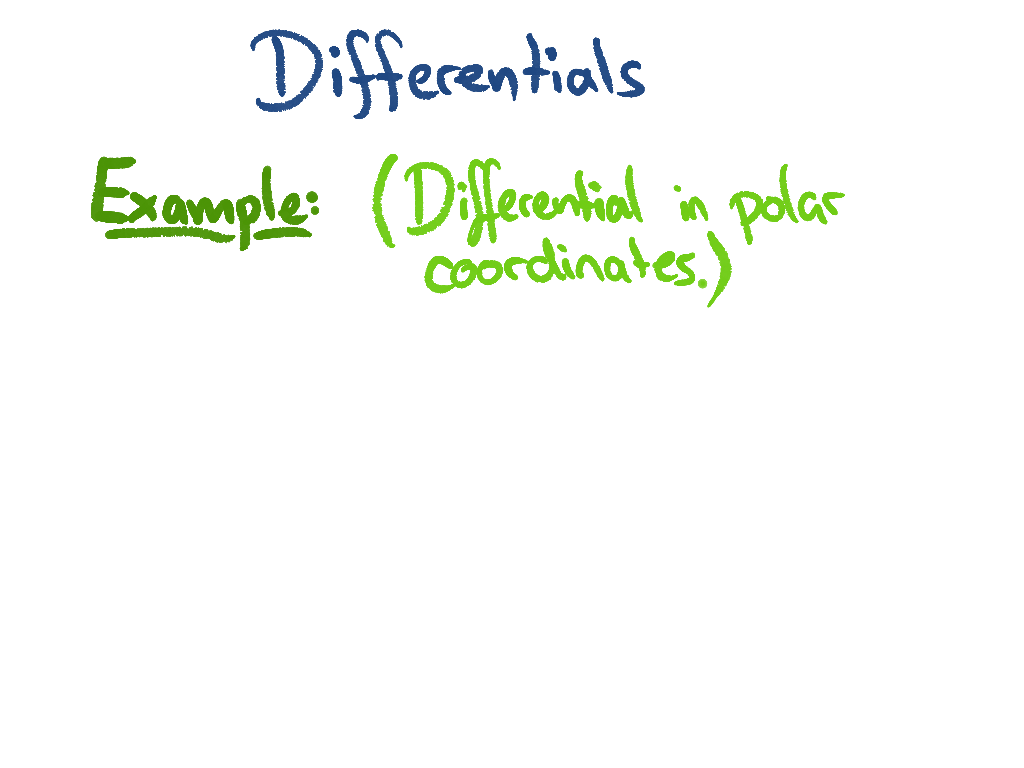 Differentials
Example: (Differential in polar
coordinates.)